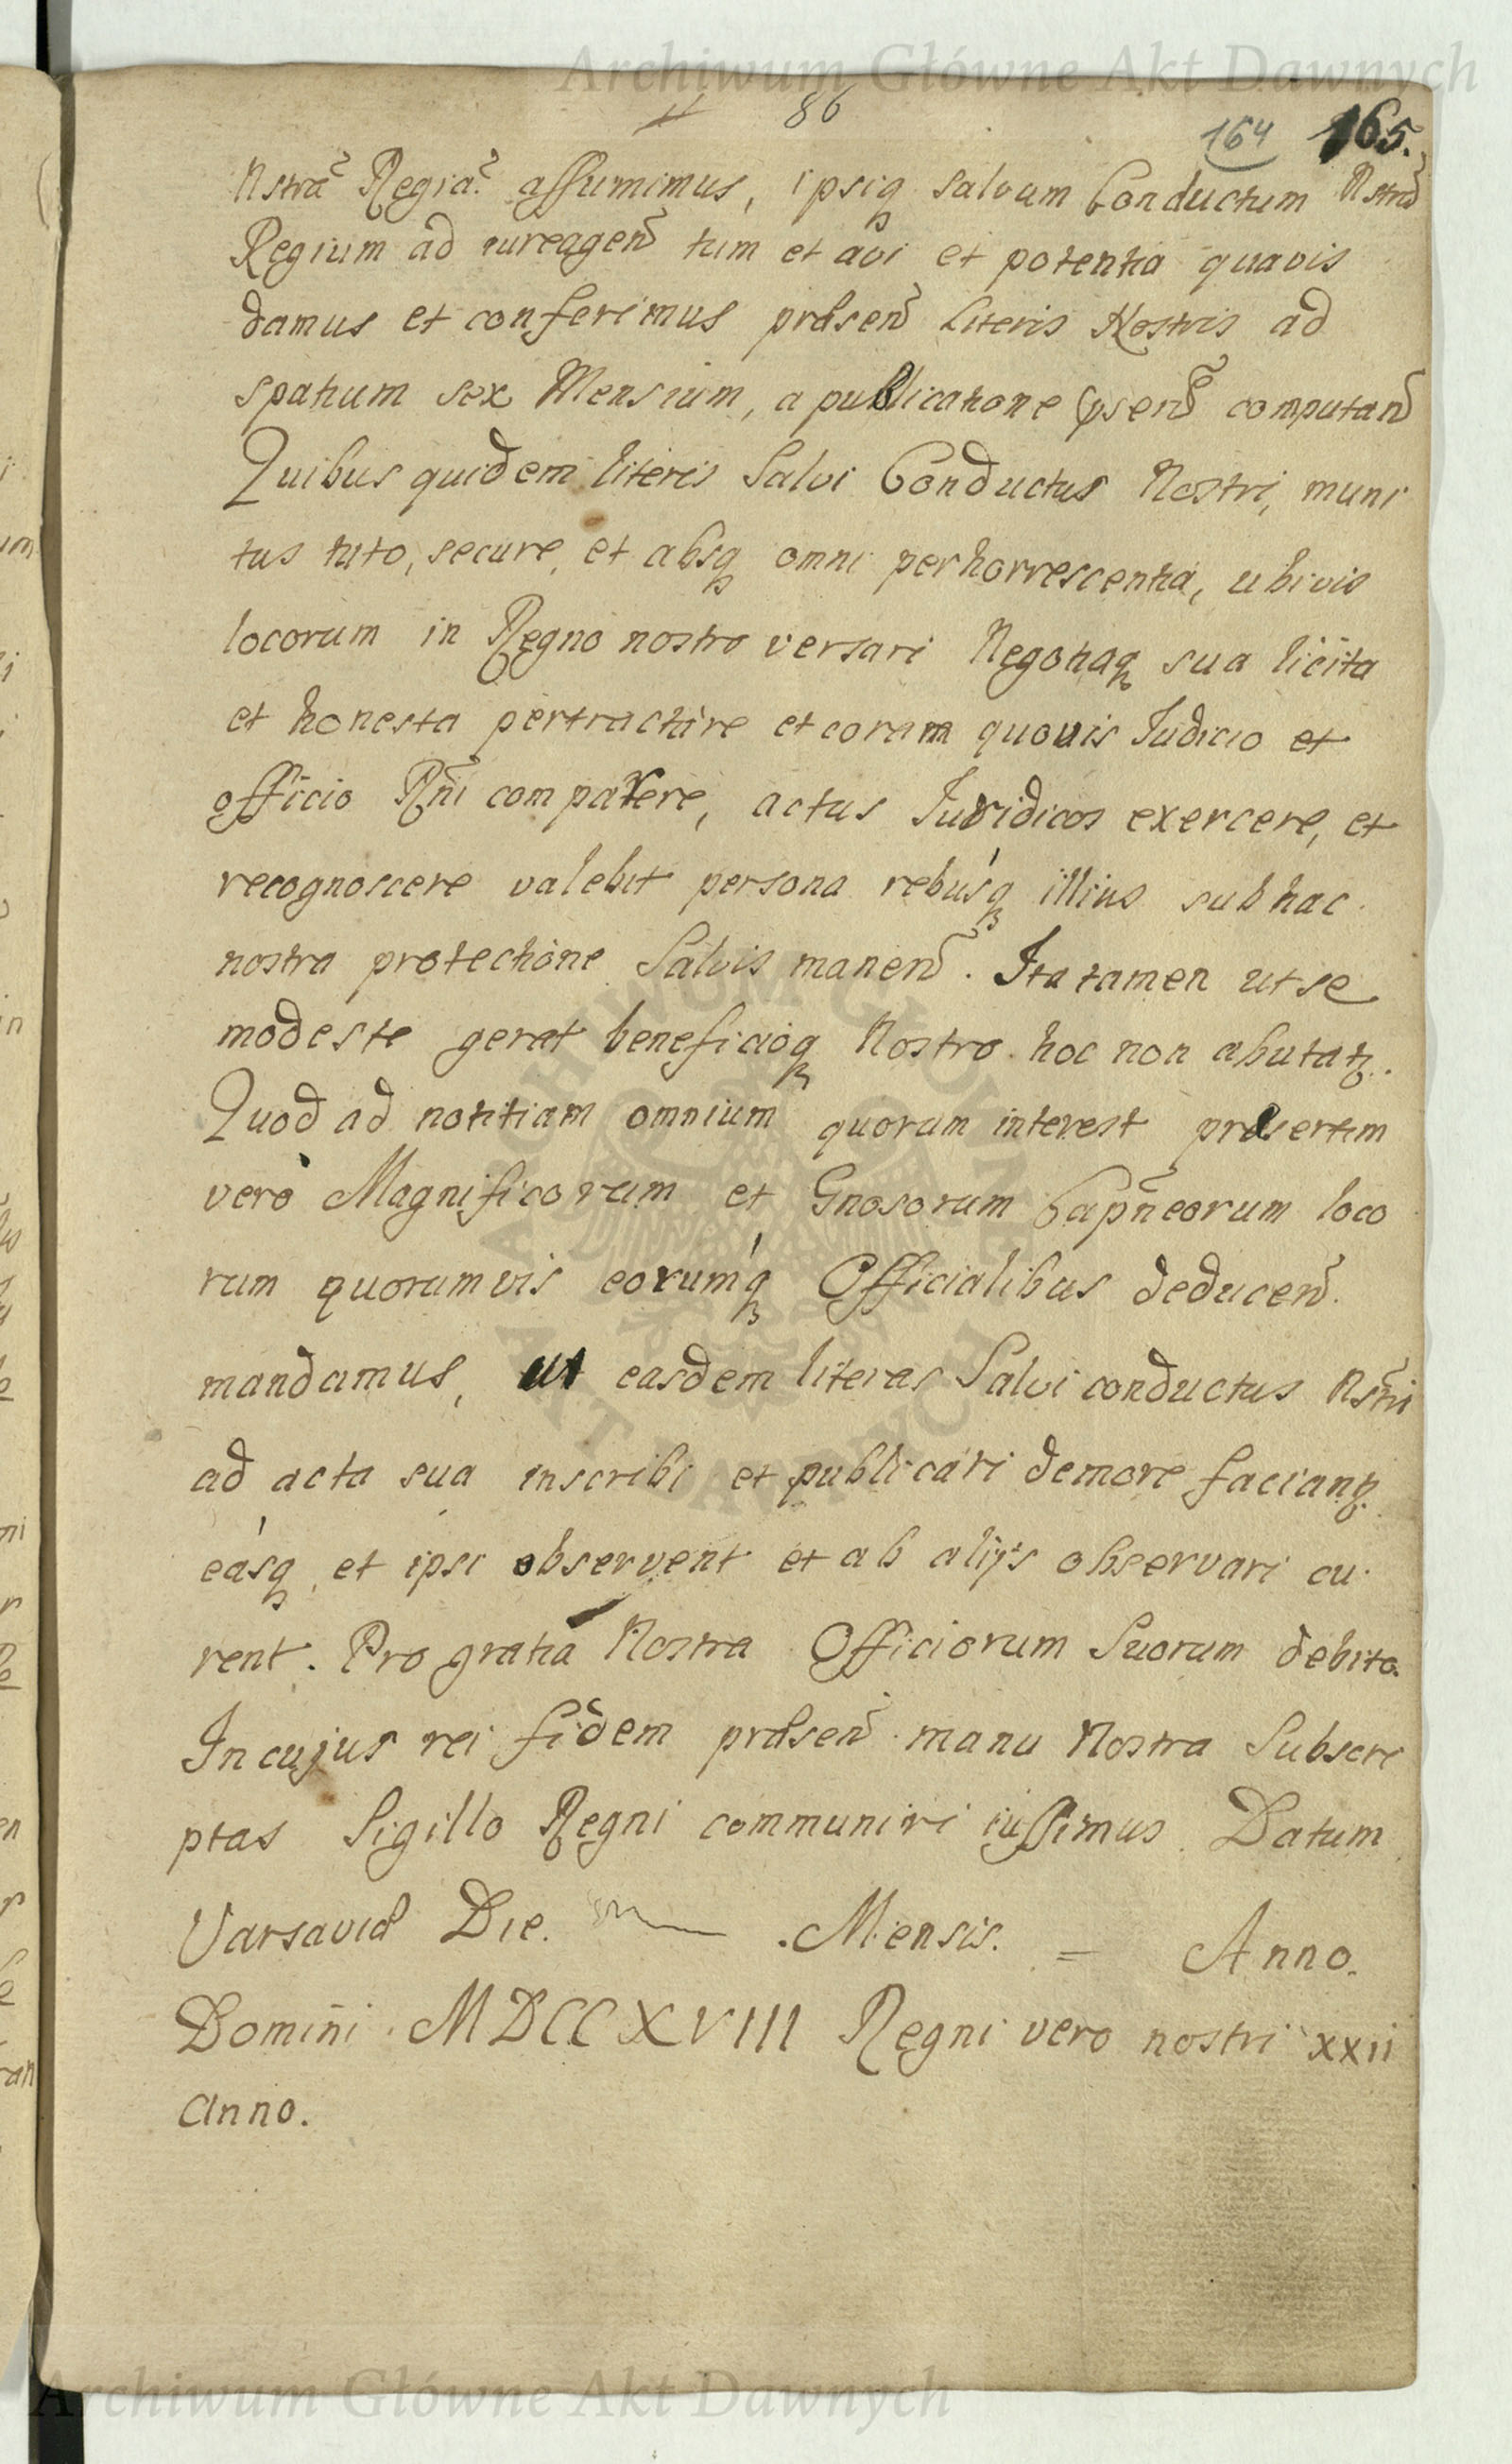 Archiwum Główne Akt Dawnych
86
164 165.
Nstrã Regiã assumimus, ipsiq salvum Conductum Nstrũ
Regium ad iureagen̄ tum et avi et potentia quavis
damus et conferimus præsen̄ Literis Nostris ad
spatium sex Mensium, a publicatione psen̄ computan̄
Quibus quidem literis Salvi Conductus Nostri, muni
tus tuto, secure, et absq omni perhorrescentia, ubivis
locorum in Regno nostro versari Negotiaq sua licita
et honesta pertractare et coram quovis Iudicio et
officio Rñi comparere, actus Iuridicos exercere, et
recognoscere valebit persona rebusq illius sub hac
nostra protectione Salvis manen̄. Ita tamen ut se
modeste gerat beneficioq Nostro hoc non abutatz.
Quod ad notitiam omnium quorum interest præsertim
vero Magnificorum et Gnosorum Capñeorum loco
rum quorumvis eorumq Officialibus deducen̄.
mandamus, ut easdem literas Salvi conductus Nstri
ad acta sua inscribi et publicari de more faciant
easq et ipsi observent et ab alijs observari cu
rent. Pro gratia Nostra Officiorum Suorum debito.
In cujus rei fidem præsen̄ manu Nostra Subscri
ptas Sigillo Regni communiri iussimus. Datum
Varsaviæ Die. Mensis. = Anno.
Domini MDCCXVIII Regni vero nostri xxii
Anno.
Archiwum Główne Akt Dawnych